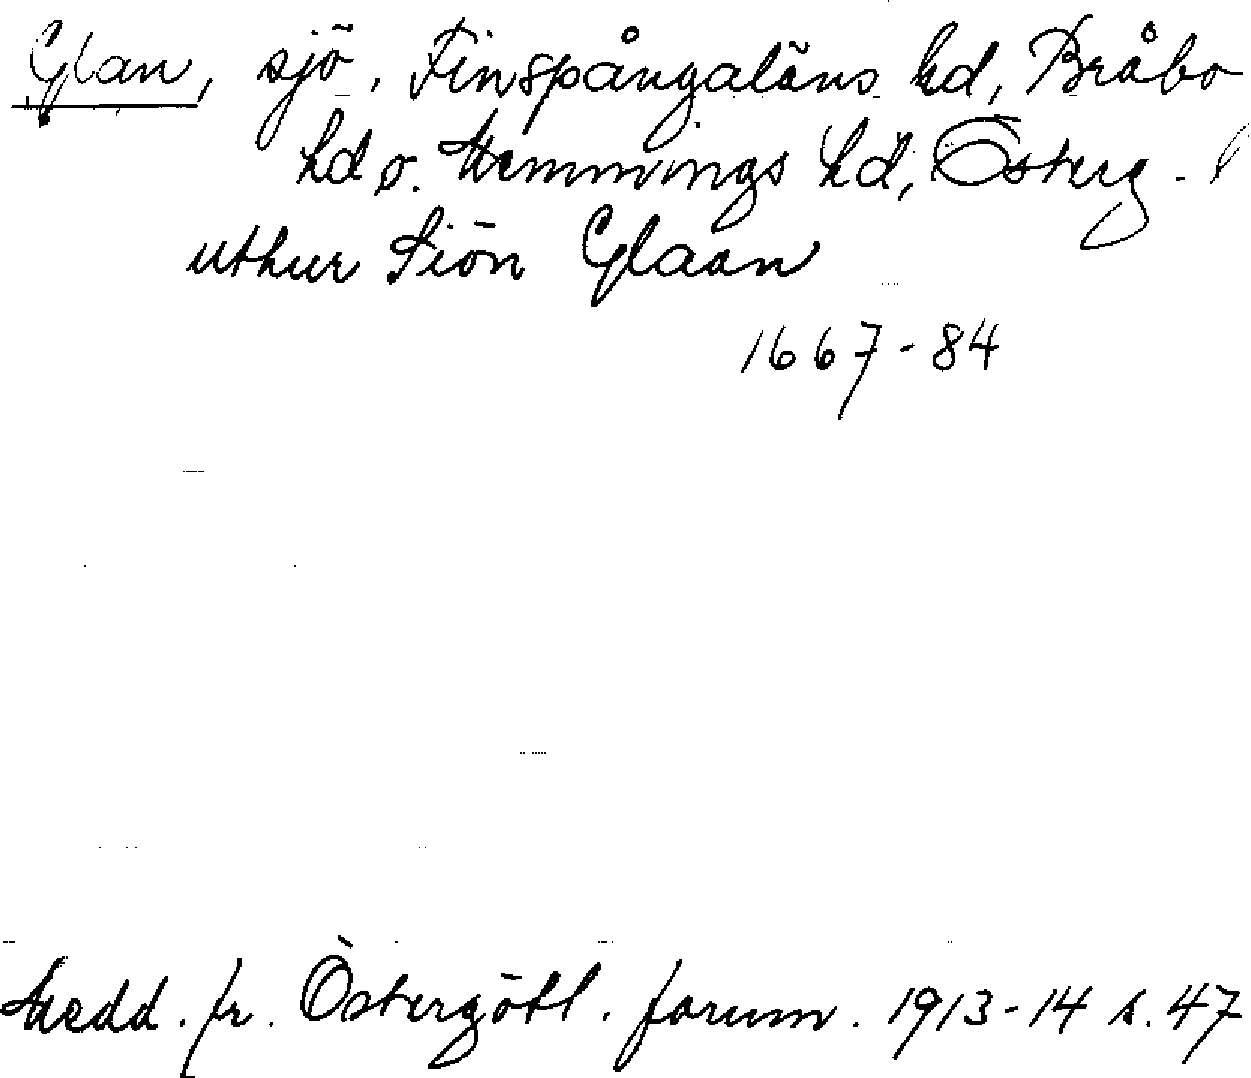 Glan, sjö, Finspångaläns hd, Bråbo
hd o. Memmings hd, Österg.
uthur Siön Glaan
1667-84
Medd. fr. Östergötl. fornm. 1913-14 s. 47